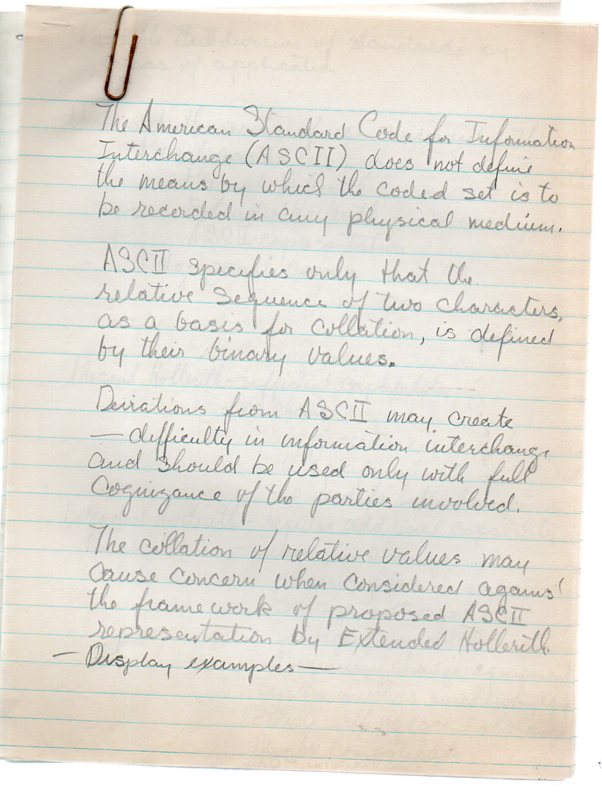 The American Standard Code for Information
Interchange (ASCII) does not define
the means by which the coded set is to
be recorded in any physical medium.
ASCII specifies only that the
relative sequence of two characters,
as a basis for collation, is defined
by their binary values.
Deviations from ASCII may create
— difficulty in information interchange
and should be used only with full
cognizance of the parties involved.
The collation of relative values may
cause concern when considered against
the framework of proposed ASCII
representation by Extended Hollerith.
— Display examples —